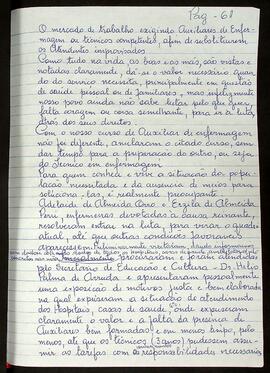 Pág - 68
O mercado de trabalho exigindo Auxiliares de Enfer-
magem ou técnicos competentes, afim de substituirem
os Atendentes improvisados.
Como tudo na vida, as boas e as más, são vistas e
notadas claramente, dá-se o valor necessário quan-
do do serviço necessita, principalmente em questão
de saúde pessoal ou de familiares, mas infelizmente
nosso povo ainda não sabe lutar pelo que quer,
falta coragem ou coisa semelhante, para ir a luta,
atrás dos seus direitos.
Com o nosso curso de Auxiliar de enfermagem
não foi diferente, anularam o citado curso, sem
dar tempo para a preparação do outro, ou seja,
do técnico em enfermagem.
Para quem conhece e vive a situação da popu-
lação necessitada e da ausencia de meios para
soluciona-las, é realmente preocupante.
Adelaide de Almeida Orro e Ercília de Almeida
Peru, enfermeiras devotadas à causa reinante,
resolveram entrar na luta, para virar o quadro
atual, até que outras condições favoraveis
aparecessem.
pessoalmente procuraram e foram atendidas
pelo Secretário de Educação e Cultura - Dr. Hélio
Palma de Arruda e apresentaram pessoalmente
uma exposição de motivos justa e bem elaborada
na qual expuseram a situação de atendimento
dos Hospitais, casas de saúde, onde expressam
claramente o valor e a falta da presença de
Auxiliares bem formadas e em menos tempo, pelo
menos, até que os técnicos (3 anos) pudessem assu-
mir as tarefas com as responsabilidade necessárias